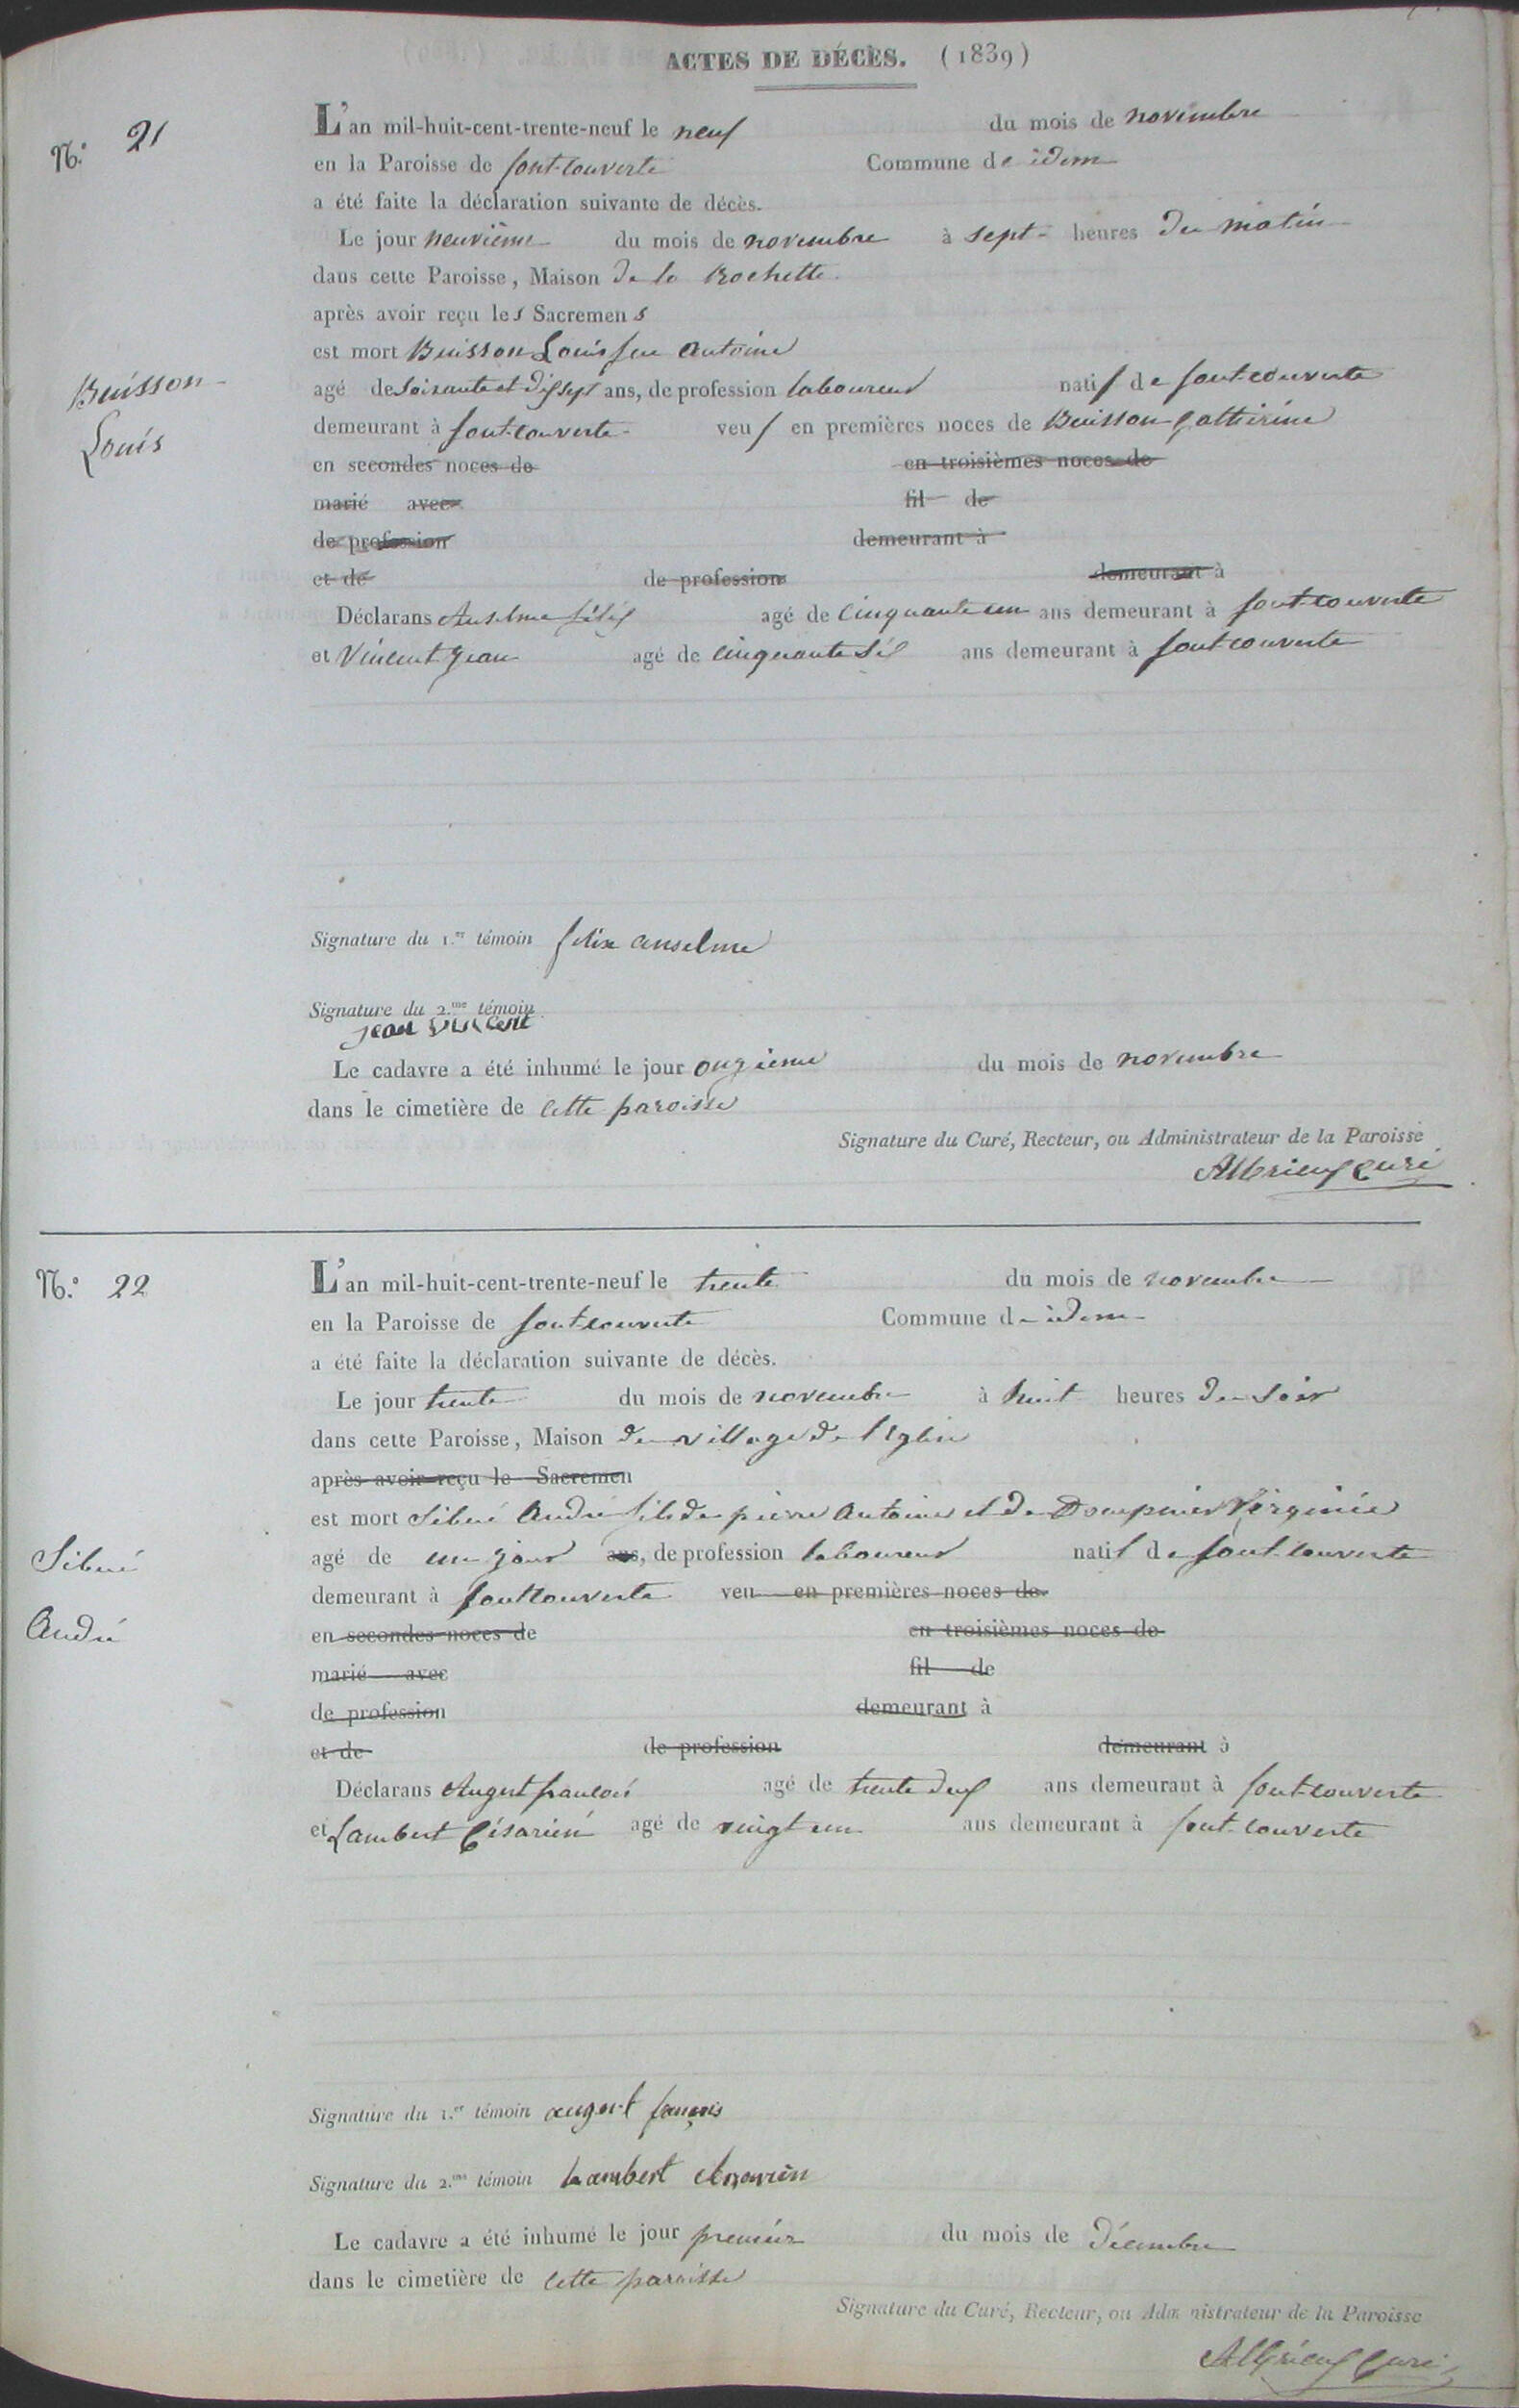 ACTES DE DÉCÈS. (1839)
N.° 21
L'an mil-huit-cent-trente-neuf le neuf du mois de novembre
en la Paroisse de font-couverte Commune de idem
a été faite la déclaration suivante de décès.
Le jour neuvième du mois de novembre à sept heures du matin
dans cette Paroisse, Maison de la Rochette
après avoir reçu les Sacremens
est mort Buisson Louis feu Antoine
Buisson
Louis
agé de soixante et dix sept ans, de profession laboureur natif de font-couverte
demeurant à font-couverte veuf en premières noces de Buisson Catherine
en secondes noces de en troisièmes noces de
marié avec fil de
de profession demeurant à
et de de profession demeurant à
Déclarans Anselme félix agé de cinquante un ans demeurant à font-couverte
et Vincent Jean agé de cinquante six ans demeurant à font couverte
Signature du 1.er témoin felix anselme
Signature du 2.me témoin
jean vincent
Le cadavre a été inhumé le jour onzieme du mois de novembre
dans le cimetière de cette paroisse
Signature du Curé, Recteur, ou Administrateur de la Paroisse
Albrieux curé
N.° 22
L'an mil-huit-cent-trente-neuf le trente du mois de novembre
en la Paroisse de font-couverte Commune de idem
a été faite la déclaration suivante de décès.
Le jour trente du mois de novembre à huit heures du soir
dans cette Paroisse, Maison du village de l'Eglise
après avoir reçu le Sacremen
est mort Sibué André fils de pierre Antoine et de Virginie
Sibué
André
agé de un jour ans, de profession laboureur natif de font-couverte
demeurant à font couverte veu en premières noces de
en secondes noces de en troisièmes noces de
marié avec fil de
de profession demeurant à
et de de profession demeurant à
Déclarans Augert francois agé de trente deux ans demeurant à font-couverte
et Lambert Césarien agé de vingt un ans demeurant à font-couverte
Signature du 1.er témoin augert françois
Signature du 2.me témoin Lambert
Le cadavre a été inhumé le jour premier du mois de décembre
dans le cimetière de cette paroisse
Signature du Curé, Recteur, ou Administrateur de la Paroisse
Albrieux curé